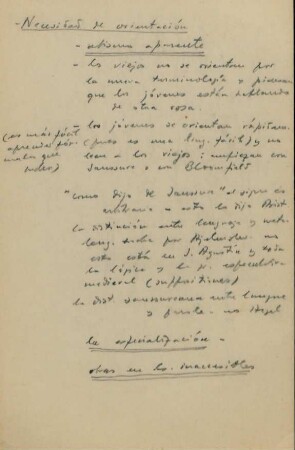 - Necesidad de orientación
- abismo aparente
- los viejos no se orientan por
la nueva terminología y piensan
que los jóvenes están hablando
de otra cosa.
- los jóvenes se orientan rápidam.
(pues es una ling. fácil) y no
leen a los viejos; empiezan con
Saussure o con Bloomfield
(es más fácil
aprender fór-
mulas que
"como dijo de Saussure" el signo es
arbitrario - esto lo dijo Arist.
la distinción entre lenguaje y meta-
leng. hecha por Hjelmslev - no
esto está en S. Agustín y toda
la lógica y la gr. especulativa
medieval (suppositiones)
la dist. saussureana entre langue
y parole - no Hegel
la especialización -
obras en lo. inaccesibles